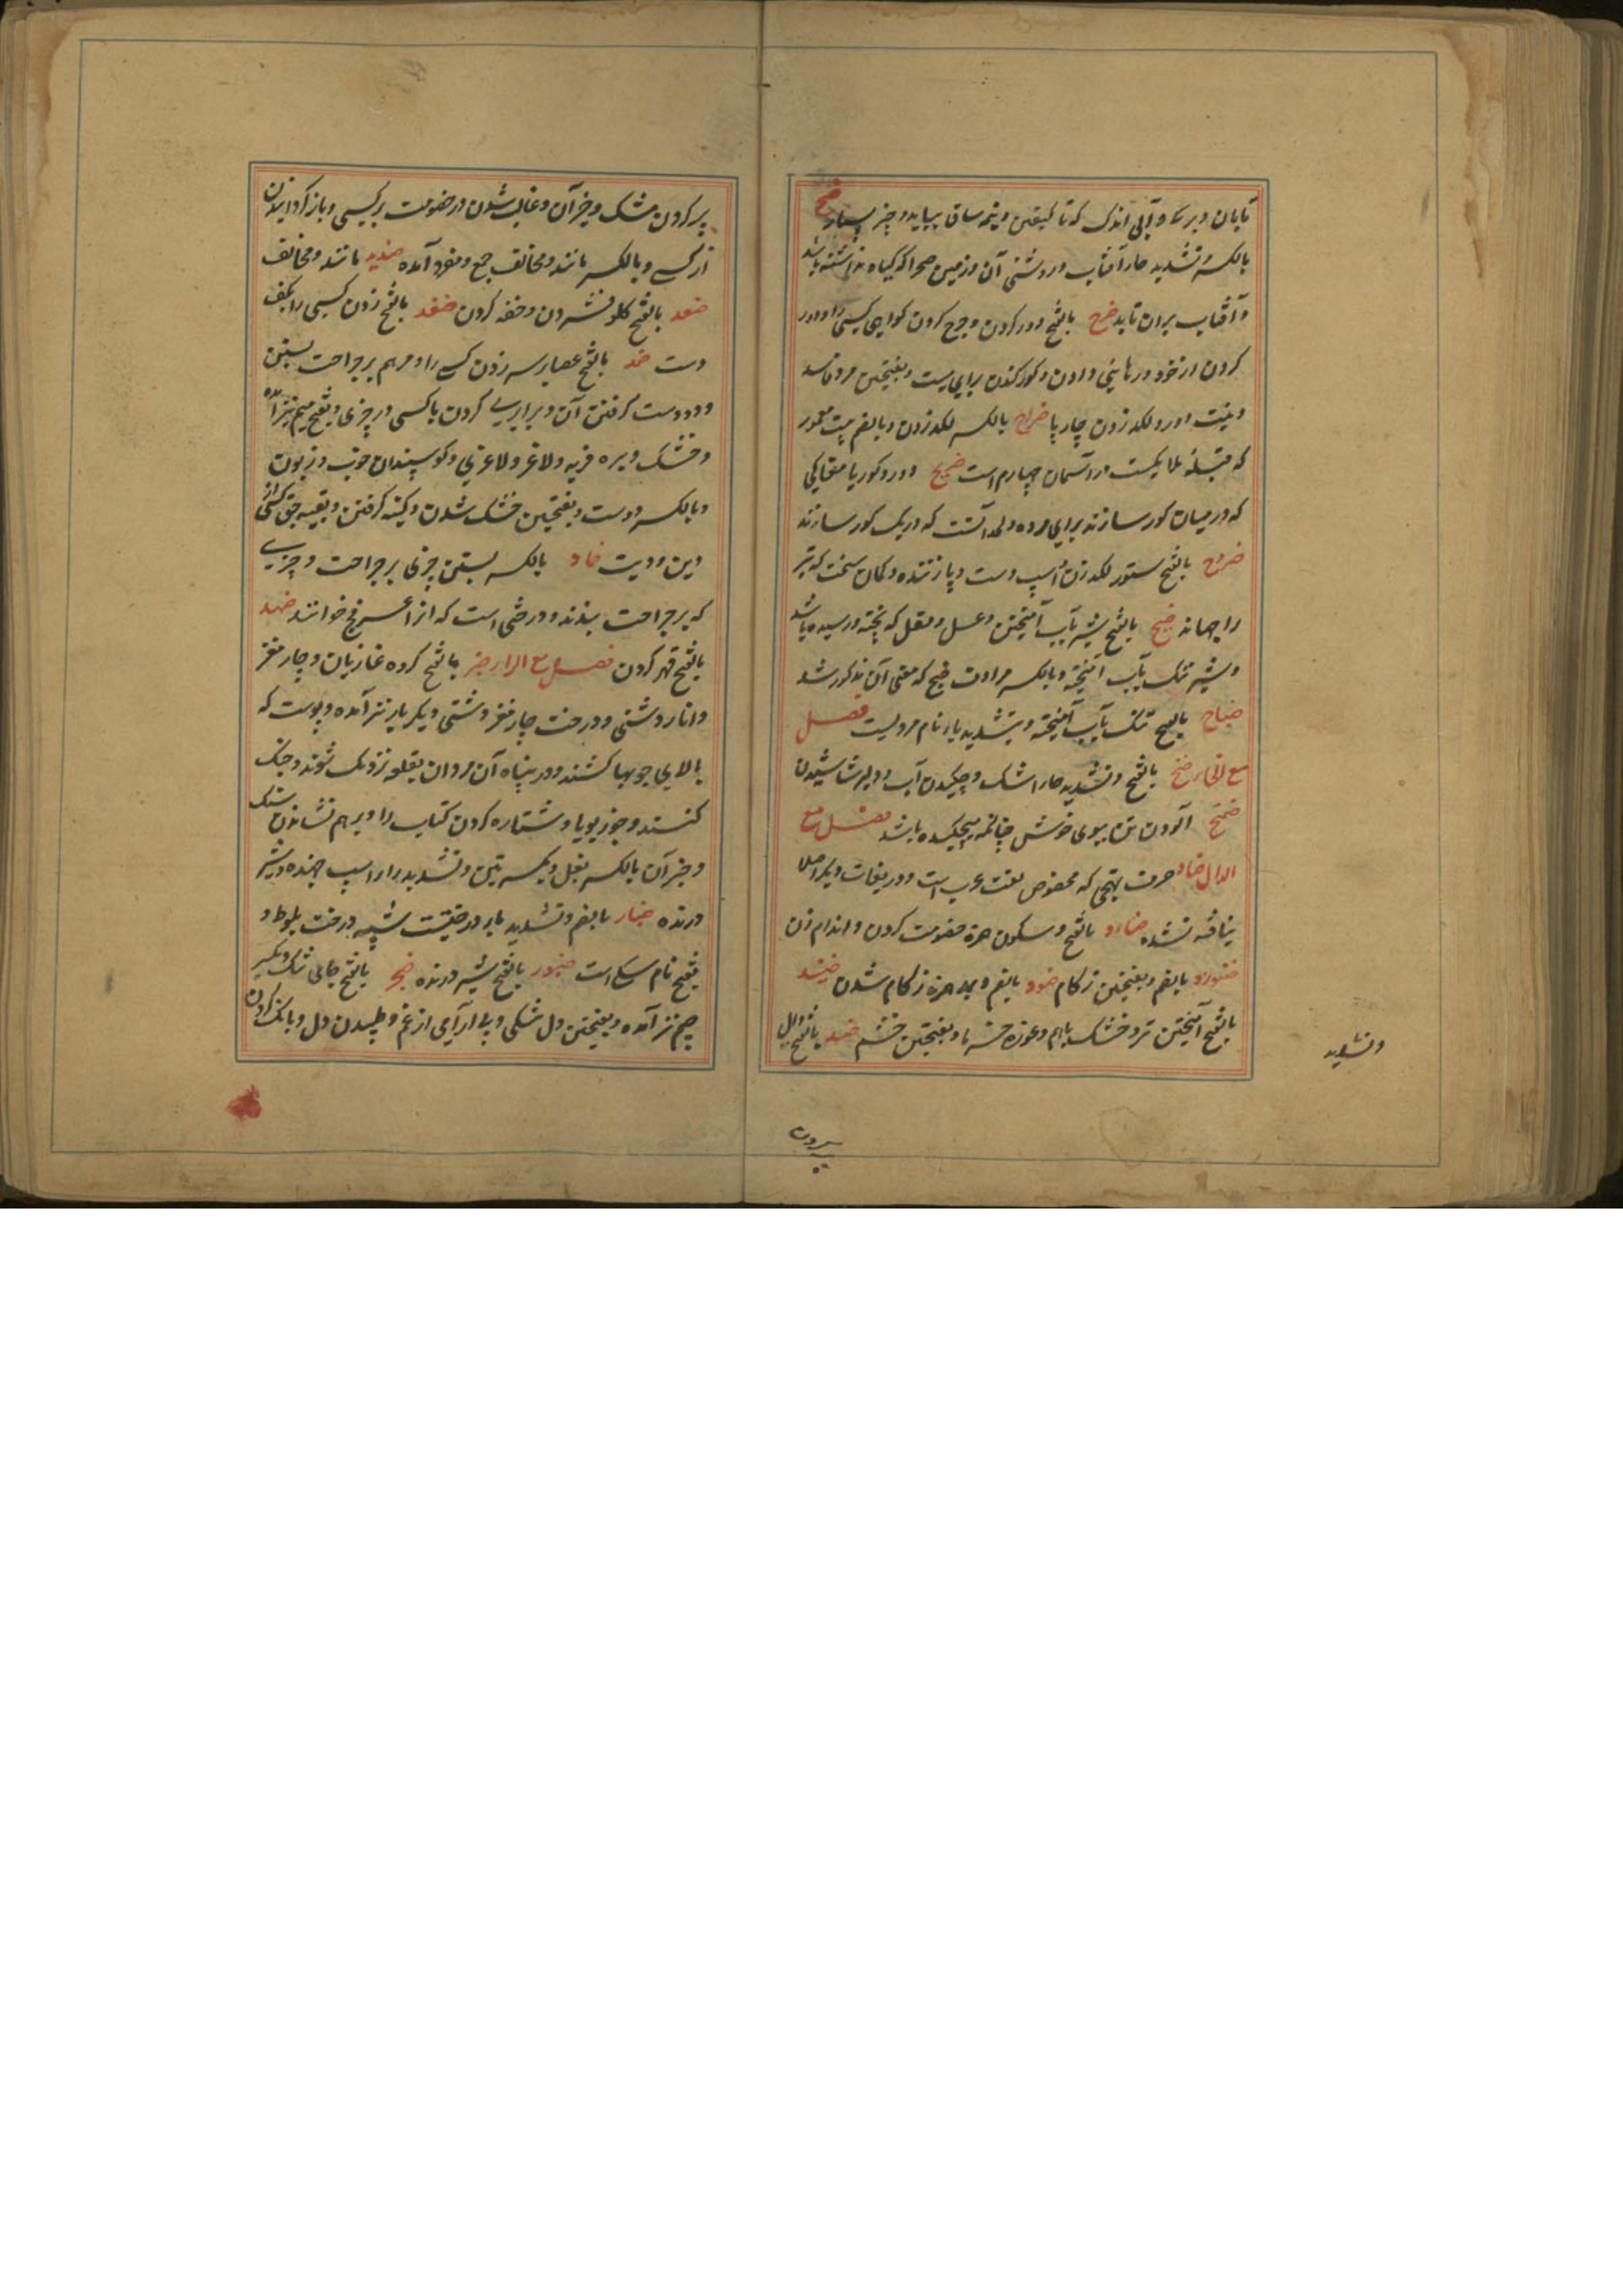 تابان و برء و آبی اندک که تا کعبین و نیمه ساق بیاید و چیز بسیار ضح
بالکسر و تشدید حاء آفتاب و روشنی آن و زمین صحرا که گیاه نداشته باشد
و آفتاب بران تابد ضرح بالفتح دور کردن و جرح کردن گواهی کسی را و دور
کردن از خود و رهانیدن و گور کندن برای میت و بفتحتین مرد فاسد
و لگد زدن چارپا ضراح بالکسر لگد زدن و بالضم بیت معمور
که قبله ملایکست در آسمان چهارم است ضریح دور و گور یا مغاکی
که در میان گور سازند برای مرده و لحد آنست که در یک گور سازند
ضروح بالفتح ستور لگد زن و اسپ دست و پا زننده و کمان سخت که تیر
را جهاند ضیح بالفتح شیر بآب آمیختن و عسل و مقل که پخته و رسیده باشد
و شیر تنک بآب آمیخته و بالکسر مرادف ضح که معنی آن مذکور شد
ضیاح بالفتح تنک بآب آمیخته و بتشدید یاء نام مردیست فصل
مع الخاء ضخ بالفتح و تشدید خاء اشک و چکیدن آب
ضمخ آلودن تن ببوی خوش چنانچه میچکیده باشد فصل مع
الدال ضاد حرف تهجی که مخصوص لغت عرب است و در لغات دیگر اصلا
یافته نشده ضاد بالفتح و سکون همزه خصومت کردن و اندام زن
بالضم و بفتحتین زکام ضود بالضم و بعد همزه زکام شدن ضمد
بالفتح آمیختن تر و خشک باهم و بفتحتین خشم ضد بالفتح دال
و تشدید
بیرون
پر کردن مشک و جز آن و غالب شدن در خصومت بر کسی و باز گردانیدن
از کسی و بالکسر مانند و مخالف جمع و مفرد آمده ضدید مانند و مخالف
ضغد بالفتح گلو فشردن و خفه کردن ضفد بالفتح زدن کسی را بکف
دست ضمد بالفتح عصا بر سر زدن کسی را و مرهم بر جراحت بستن
و دو دوست گرفتن آن و برابری کردن با کسی در چیزی و بفتح میم نیز آمده
و خشک و بره فربه و لاغر و لاغری و گوسپندان خوب و زبون
و بالکسر دوست و بفتحتین خشک شدن و کینه گرفتن و بقیه حق کسی از
دین و دیت ضماد بالکسر بستن چیزی بر جراحت و چیزی
که بر جراحت بندند و درختی است که انرا عرفج خوانند ضهد
بالفتح قهر کردن فصل مع الراء ضبر بالفتح گروه غازیان و چارمغز
و انار دشتی و درخت چارمغز دشتی و بکر باء نیز آمده و پوست که
بالای چوبها کشند و در پناه آن مردان بقلعه نزدیک شوند و جنگ
کنند و جوز بویا و شتاره کردن کتاب را و برهم نشاندن سنگ
و جز آن بالکسر بغل و بکسرتین و تشدید راء اسپ جهنده و شیر
درنده ضبار بالضم و تشدید باء درختیست شبیه درخت بلوط و
بفتح نام سگی است ضبور بالفتح شیر درنده ضجر بالفتح جای تنگ و بکسر
جیم نیز آمده و بفتحتین دل تنگی و بی آرامی از غم و طپیدن دل و بانگ کردن